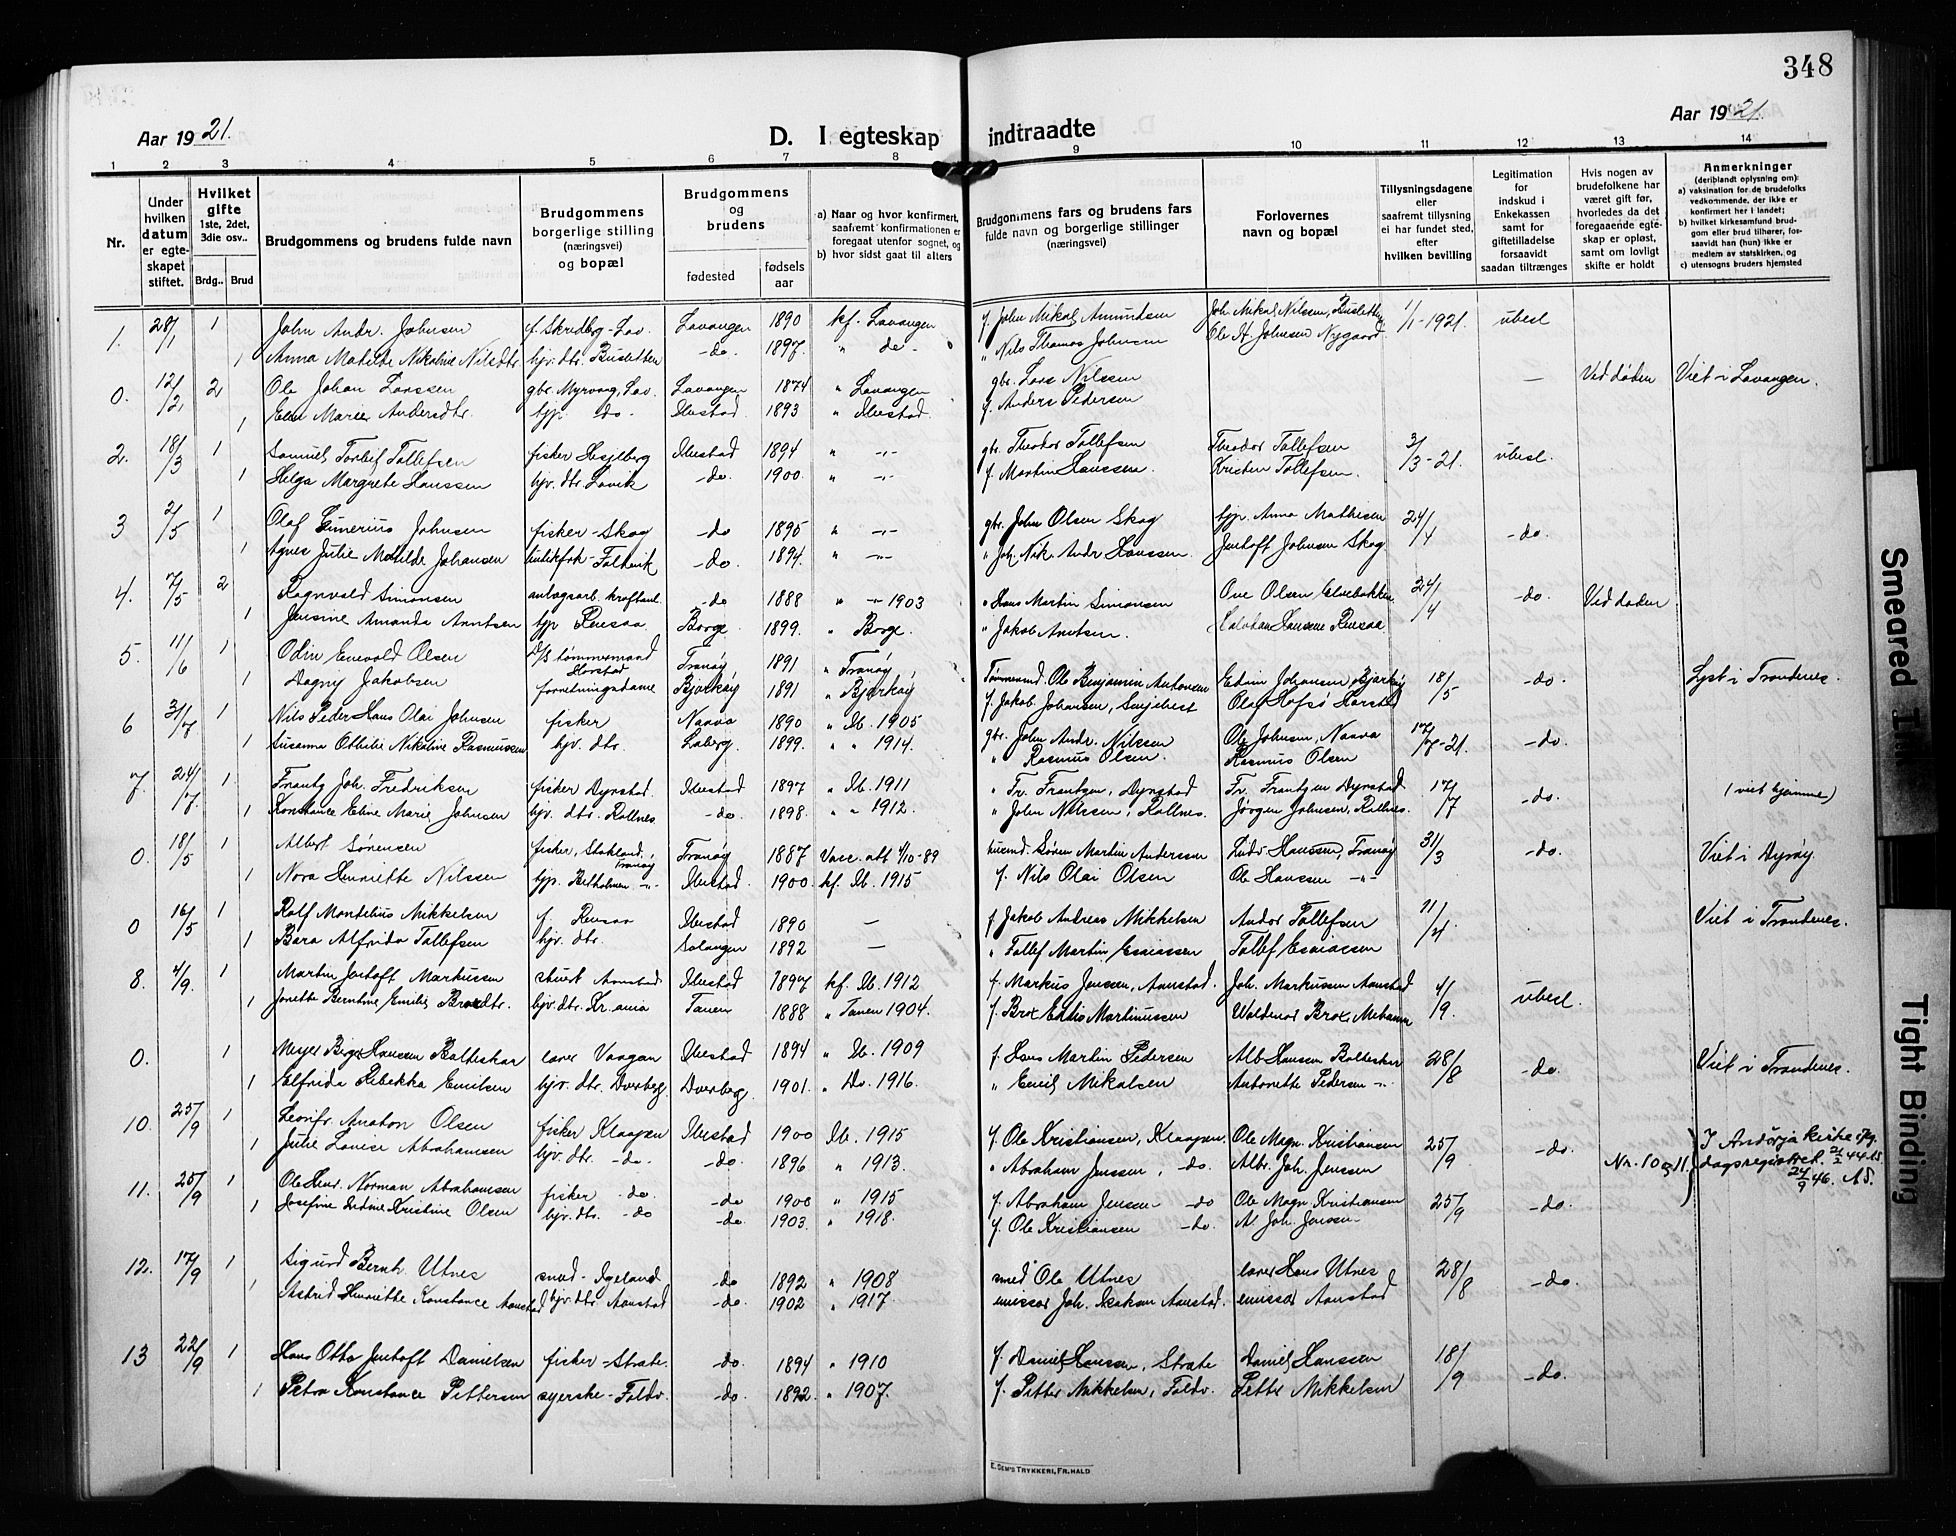 348
Aar 1921.
D. I egteskap indtraadte
Aar 1921.
1 2 3 4 5 6 7 8 9 10 11 12 13 14
Nr.
Under hvilken datum er egteskapet stiftet.
Hvilket gifte 1ste, 2det, 3die osv..
Brdg.. Brud
Brudgommens og brudens fulde navn
Brudgommens borgerlige stilling (næringsvei) og bopæl
Brudgommens og brudens
fødested
fødselsaar
a) Naar og hvor konfirmert, saafremt konfirmationen er foregaat utenfor sognet, og
b) hvor sidst gaat til alters
Brudgommens fars og brudens fars fulde navn og borgerlige stillinger (næringsvei)
Forlovernes navn og bopæl
Tillysningsdagene eller saafremt tillysning ei har fundet sted, efter hvilken bevilling
Legitimation for indskud i Enkekassen samt for giftetilladelse forsaavidt saadan tiltrænges
Hvis nogen av brudefolkene har været gift før, hvorledes da det foregaaende egteskap er opløst, samt om lovligt skifte er holdt
Anmerkninger (deriblandt oplysning om):
a) vaksination for de brudefolks vedkommende, der ikke er konfirmert her i landet;
b) hvilket kirkesamfund brudgom eller brud tilhører, forsaavidt han (hun) ikke er medlem av statskirken, og
c) utensogns bruders hjemsted
1. 28/1 1 John Andr. Johnsen f. Skredbg-Lav. Lavangen 1890 kf. Lavangen f. John Mikal Amundsen Joh. Mikal Nilssen, Busletten 1/1-1921. ubesl
1 Anna Matilde Nikoline Nilsdtr. hjv. dtr. Busletten -do- 1897. " do - " Nils Thomas Johnsen Ole H. Johnsen Nygaard
0. 12/2 2 Ole Johan Larssen gbr. Myrvang, Lav. Lavangen 1874 " Lavangen gbr. Lars Nilssen — Ved døden Viet i Lavangen.
1 Elen Marie Andersdtr. hjp. do. Ibestad 1893 " Ibestad. f. Anders Pedersen
2. 18/3 1 Samuel Torleif Tollefsen fisker Hesjlberg Ibestad 1894 " -"- gbr. Theodor Tollefsen Theodor Tollefsen 3/3-21. ubesl.
1 Helga Margrete Hanssen hjv. dtr. Lavik -do. 1900. " -"- f. Martin Hanssen. Kristen Tollefsen.
3 2/5 1 Olaf Johnsen fisker-Skog -do 1895 " -"- gbr. John Olsen Skog hjp. Anna Mathisen 24/4 -do.
1 Agnes Julie Matilde Johansen -do. 1894. " -"- " Joh. Nik. Andr Hanssen. Jentoft Johnsen Skog
4. 7/5 2 Ragnvald Simonsen anlægsarb. kraftanl. -do 1888 " -"- 1903 " Hans Martin Simonsen Ove Olsen Elvebakken 24/4 -do. Ved døden
1 Jensine Amanda Arntsen hjp Rensaa. Borge 1899. " Borge. " Jakob Arntsen. Hanssen Rensaa
5. 11/6 1 Odin Enevold Olsen D/S tømmermand Harstad Tranøy 1891 " Tranøy Tømmermd. Ole Benjamin Antonsen Edvin Johansen, Bjarkøy 18/5 -do. Lyst i Trondenes.
1 Dagny Jakobsen forretningsdame Bjarkøy 1891 " Bjarkøy f. Jakob Johansen, Olaf Hofsø Harstad
6 31/7 1 Nils Peder Hans Olai Johnsen fisker Naava 1890 " Ib. 1905 gbr. John Andr. Nilssen Ole Johnsen, Naava 17/7-21. -do.
1 Susanna Othilie Nikoline Rasmussen hjv. dtr. Laberg. 1899. " " 1914. " Rasmus Olsen. Rasmus Olsen
7. 24/7 1. Frantz Joh. Fredriksen fisker Dyrstad. Ibestad 1897 " Ib. 1911 " Fr. Frantzen, Dyrstad Fr. Frantzen Dyrstad 17/7 -do. (viet hjemme)
1 Konstance Eline Marie Johnsen hjv. dtr. Rollnes. -do. 1898. " " 1912. " John Nilssen, Rollnes. Jørgen Johnsen, Rollnes.
0. 18/5 1 Albert Sørensen fisker, Stakland, Tranøy Tranøy 1887 Vacc. att 4/10-89 husmd. Søren Martin Andersen Ludv Hanssen, Tranøy 31/3 -do. Viet i Dyrøy.
1 Nora Henriette Nilssen hjp. Betholmen -"- Ibestad. 1900. kf. Ib. 1915 f. Nils Olai Olsen Ole Hanssen -"-
0 16/5 1 Rolf Mandelius Mikkelsen f. Rensaa Ibestad 1890 — f Jakob Andreas Mikkelsen Andor Tollefsen 11/4 Viet i Trondenes.
1 Bara Alfrida Tollefsen hjv. dtr. Salangen 1892 — " Tollef Martin Esaiassen Tollef Esaiassen
8. 4/9. 1 Martin Jentoft Markussen Aanstad. Ibestad 1897 kf. Ib. 1912 f. Markus Jenssen, Aanstad. Joh. Markussen Aanstad 4/9. ubesl.
1 Jonette Berntine Emilie Broxdtr. hjv. dtr. Kr.ania Tanen 1888 " Tanen 1904. f. Brox Martinussen Waldemar Brox, Mehamn
0. 1 Meyer Birger Hanssen Balteskar lærer Vaagan Ibestad 1894 " Ib. 1909 f. Hans Martin Pedersen Alb Hanssen Balteskar 28/8 -do. Viet i Trondenes.
1 Elfrida Rebekka Emilsen hjv. dtr. Dverbeg. Dverbeg. 1901. " Do. 1916. " Emil Mikalsen Antonette Pedersen -"-
10. 25/9 1 Leonfr. Anaton Olsen fisker Klaapen Ibestad 1900 Ib. 1915 f. Ole Kristiansen, Klaapen. Ole Magn. Kristiansen 25/9 -do.
1 Julie Lovise Abrahamsen hjv. dtr. -do. -do. 1896 " 1913. " Abraham Jenssen, do. Albr. Joh. Jenssen
Nr. 10 og 11. I Andørja kirke i flg. dagsregistret. 21/2 44 AS. 24/9 46. AS.
11. 25/9 1 Ole Henr. Norman Abrahamsen fisker -do. -do 1900 " 1915 f. Abraham Jenssen -do Ole Magn. Kristiansen 25/9 -do.
1 Josefine Kristine Olsen hjv. dtr. -do -do. 1903. " 1918. f. Ole Kristiansen -do. Al Joh. Jenssen
12. 17/9 1 Sigurd Bernh. Utnes smed - Igeland -do 1892 " 1908 smed Ole Utnes lærer Hans Utnes 28/8 -do.
1 Astrid Henriette Konstance Aanstad hjv. dtr. Aanstad -do. 1902 " 1917. emissær Joh. Aanstad. emissær Aanstad
13 22/9 1 Hans Otto Jentoft Danielsen fisker-Strate. -do. 1894 " 1910 f. Daniel Hanssen, Strate Daniel Hanssen 18/9 -do.
1 Petra Konstance Pettersen syerske-Foldv. -do. 1892 " 1907. f. Petter Mikkelsen, Foldv. Petter Mikkelsen
E. SEM'S TRYKKERI, FR.HALD
Smeared Ink
Tight Binding